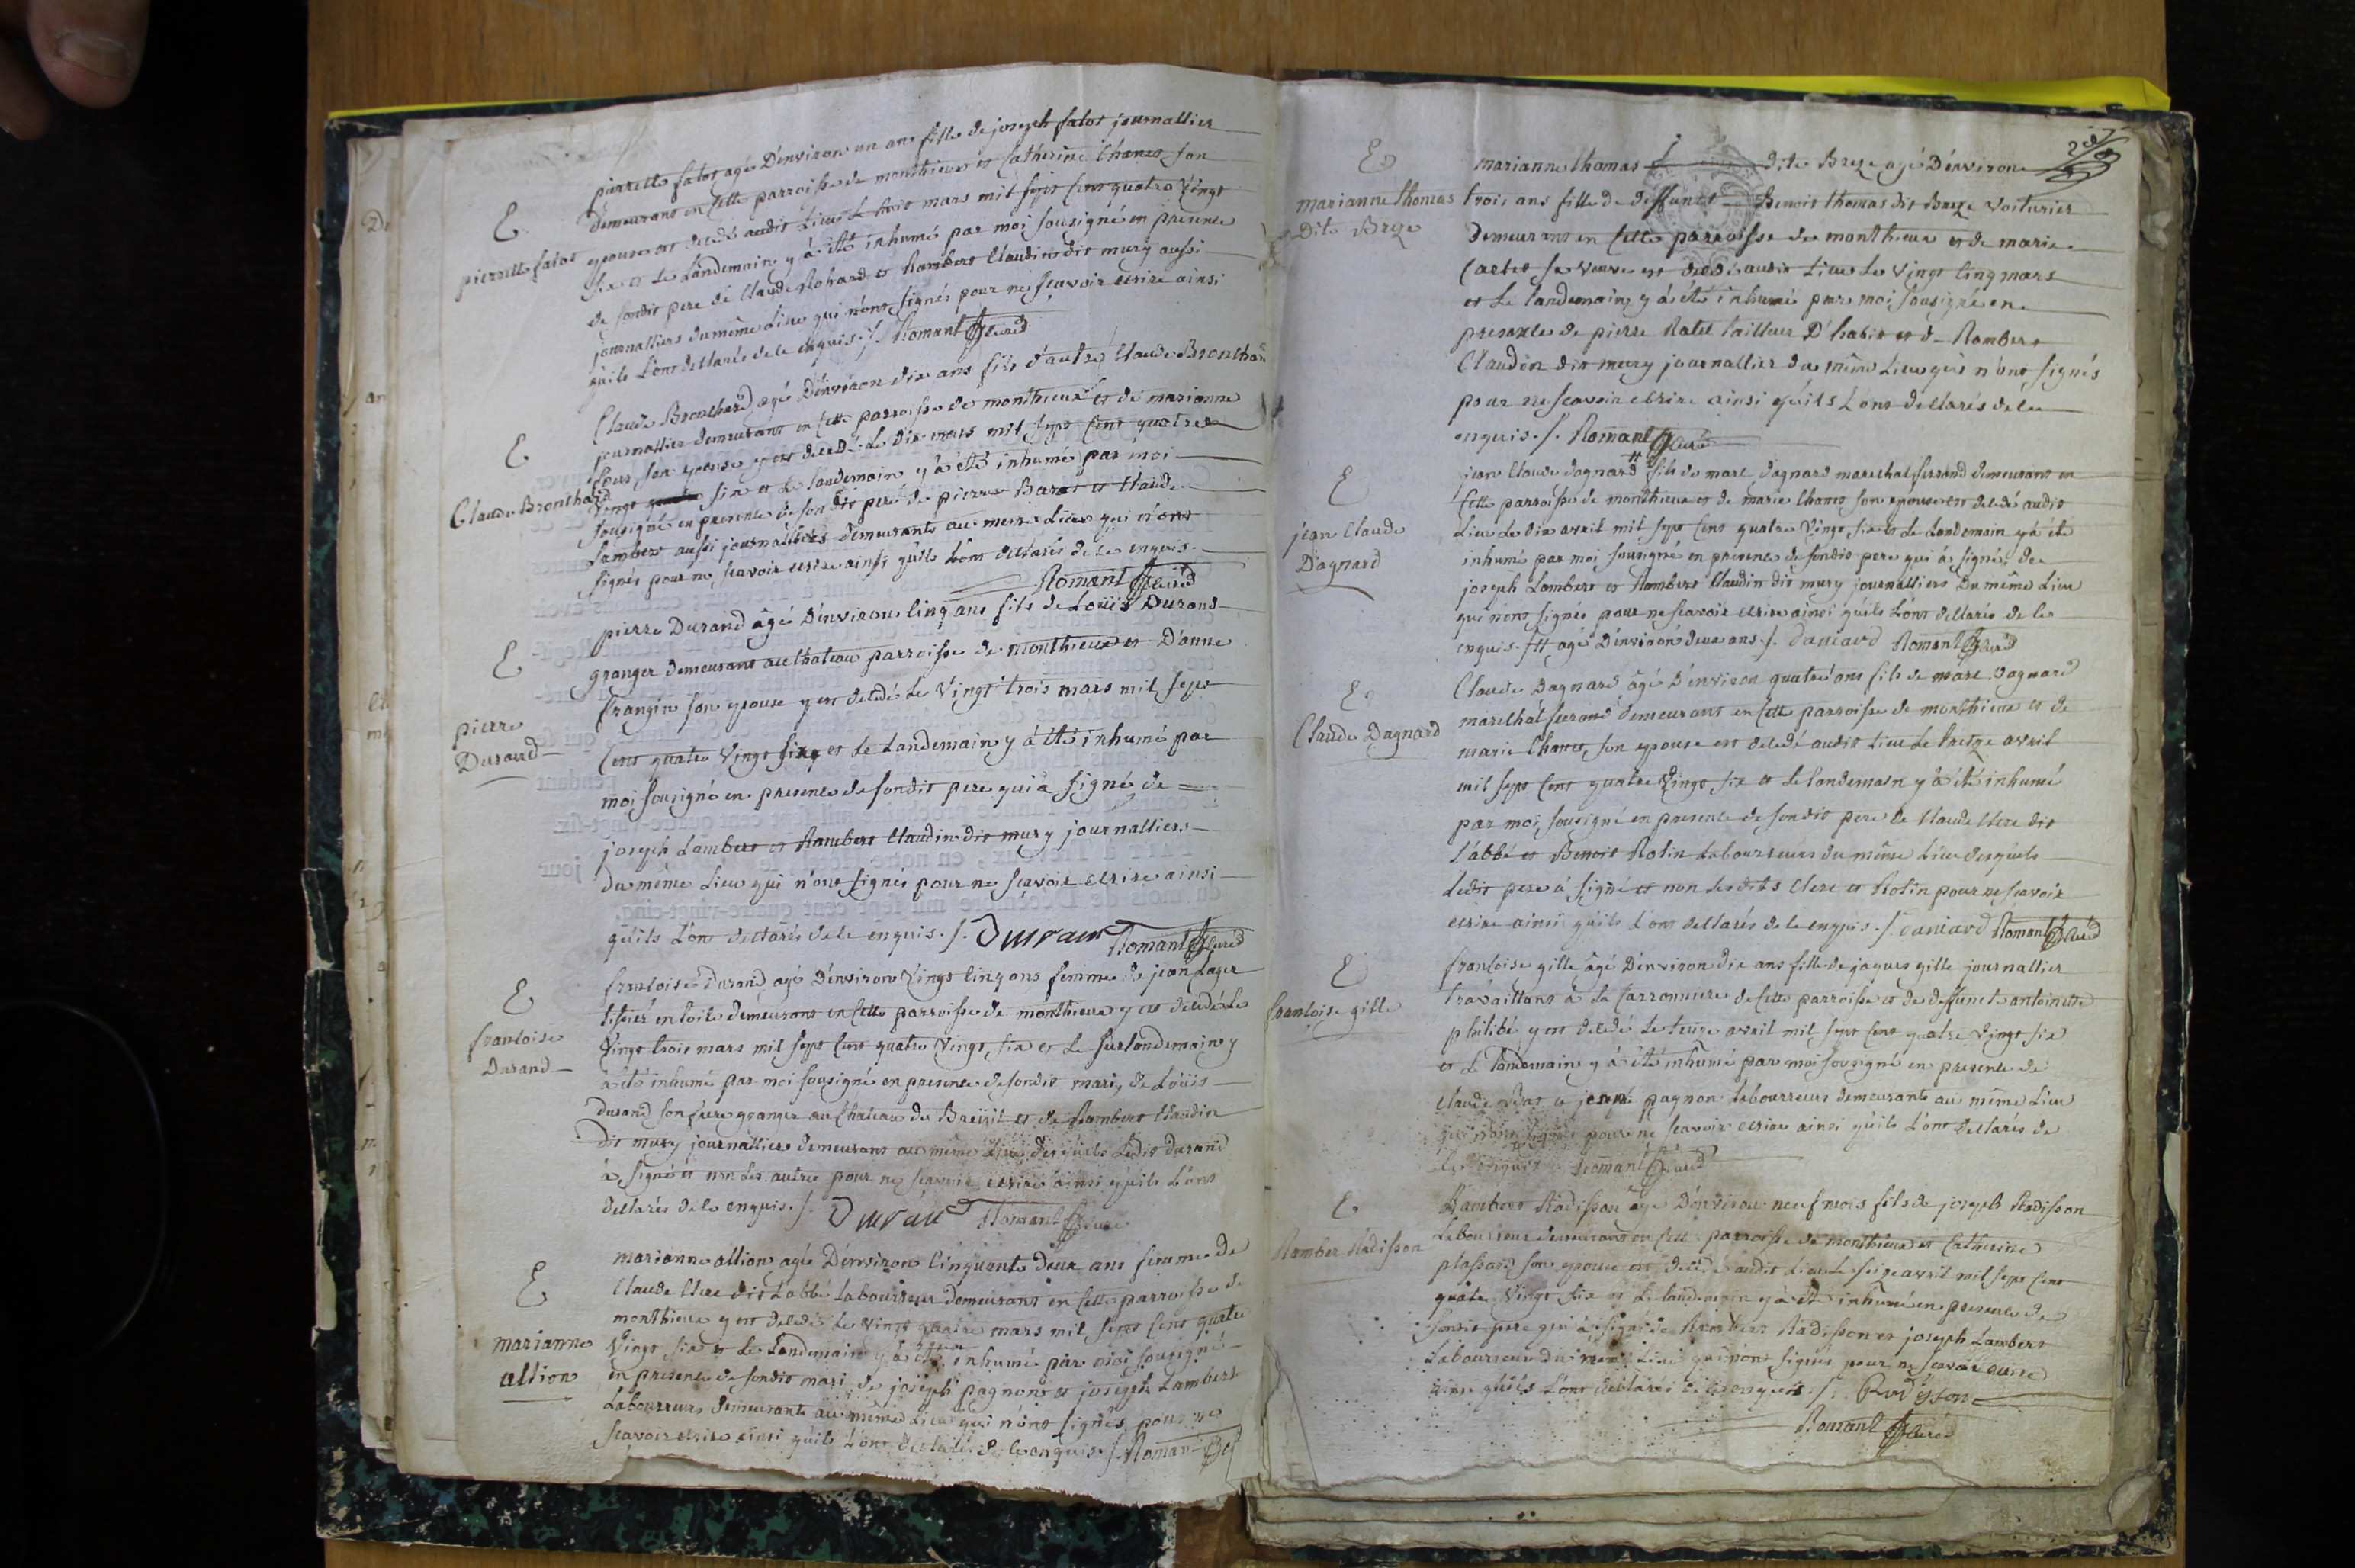 E
pierrette falot
pierrette falot agé D'environ un ans fille de joseph falot journallier
demeurant en cette parroisse de monthieux et Catherine Chanet son
epouse est decedé audit Lieu le huit mars mil sept cent quatre Vingt
six et le Landemain y à été inhumé par moi sousigné en presence
de sondit pere de Claude Rohard et Rambert Claudin dit mury aussi
journalliers du même Lieu qui n'ont signés pour ne scavoir ecrire ainsi
qu'ils L'ont declarés de ce enquis ./. Romant curé
E
Claude Bronchard
Claude Bronchard agé D'environ dix ans fils d'autre Claude Bronchard
journallier demeurant en cette parroisse de monthieux et de marianne
son epouse y est decedé Le dix mars mil sept cent quatre
Vingt six et Le landemain y à été inhumé par moi
sousigné en presence de son dit pere de pierre Barat et Claude
Lambert aussi journalliers demeurants au meme Lieu qui n'ont
signés pour ne scavoir ecrire ainsi qu'ils L'ont declarés de ce enquis.
Romant curé
E
pierre
Durand
pierre Durand âgé D'environ cinq ans fils de Loüis Durand
granger demeurant au chateau parroisse de monthieux et D'anne
frangin son epouse y est decedé Le Vingt trois mars mil sept
Cent quatre Vingt six et Le Landemain y à été inhumé par
moi sousigné en presence de sondit pere qui à signé de
joseph Lambert et Rambert Claudin dit mury journalliers
du même Lieu qui n'ont signés pour ne scavoir ecrire ainsi
qu'ils L'on declarés de ce enquis ./. Durand Romant curé
E
francoise
Durand
francoise Durand agé D'environ Vingt cinq ans femme de jean Lager
tissier en toile demeurant en cette parroisse de monthieux y est decedé Le
Vingt trois mars mil sept cent quatre Vingt six et Le surlandemain y
à été inhumé par moi sousigné en presence de sondit mari, de Loüis
Durand son frere granger au chateau du Breüil et de Rambert Claudin
dit mury journallier demeurant au même Lieu desquels Ledit Durand
à signé et non Les autre pour ne scavoir ecrire ainsi qu'ils L'ont
declarés de ce enquis ./. Durand Romant curé
E
marianne
allion
marianne allion agé D'environ Cinquante deux ans femme de
Claude Clere dit L'abbé Labourreur demeurant en cette parroisse de
monthieux y est decedé Le Vingt quatre mars mil sept cent quatre
Vingt six et Le Landemain y à été inhumé par moi sousigné
en presence de sondit mari de joseph pagnon et joseph Lambert
Labourreurs demeurants au même Lieu qui n'ont signés pour ne
scavoir ecrire ainsi qu'ils L'ont declaré de ce enquis ./. Romant
E
marianne thomas
Dite Breze
marianne thomas dite Breze agé D'environ
trois ans fille de deffunct Benoit thomas dit Breze Voiturier
Demeurant en cette parroisse de monthieux et de marie
sa Veuve est decedé audit Lieu Le Vingt cinq mars
et Le landemain y à été inhumé par moi sousigné en
presence de pierre Ratel tailleur D'habit et de Rambert
Claudin dit mury journallier du même Lieu qui n'ont signés
pour ne scavoir ecrire ainsi qu'ils L'ont declarés de ce
enquis ./. Romant curé
E
jean Claude
Dagnard
jean Claude dagnard # fils de marc dagnard marechal ferrand demeurant en
cette parroisse de monthieux et de marie Chanet son epouse est decedé audit
Lieu Le dix avril mil sept cent quatre Vingt six et Le Landemain y à été
inhumé par moi sousigné en presence de sondit pere qui à signé, de
joseph Lambert et Rambert Claudin dit mury journalliers Du même Lieu
qui n'ont signés pour ne scavoir ecrire ainsi qu'ils L'ont declarés de ce
enquis # agé D'environ deux ans ./. daniard Romant curé
E
Claude Dagnard
Claude Dagnard âgé D'environ quatre ans fils de marc Dagnard
marechal ferrand demeurant en cette parroisse de monthieux et de
marie Chanet son epouse est decedé audit Lieu Le treize avril
mil sept cent quatre Vingt six et le landemain y à été inhumé
par moi sousigné en presence de sondit pere de Claude Clere dit
L'abbé et Benoit Rolin Labourreurs du même Lieu desquels
Ledit pere à signé et non Lesdits Clere et Rolin pour ne scavoir
ecrire ainsi qu'ils L'ont declarés de ce enquis ./. daniard Romant curé
E
francoise gille
francoise gille âgé D'environ dix ans fille de jaques gille journallier
travaillant à La Carronniere de cette parroisse et de deffuncte antoinette
philibé y est decedé Le treize avril mil sept cent quatre Vingt six
et Le landemain y à été inhumé par moi sousigné en presence de
Claude Bar et joseph pagnon Labourreurs demeurants au même Lieu
qui n'ont signés pour ne scavoir ecrire ainsi qu'ils L'ont declarés de
ce enquis Romant curé
E
Rambert Radisson
Rambert Radisson âgé D'environ neuf mois fils de joseph Radisson
Labourreur demeurant en cette parroisse de monthieux et Catherine
plassard son epouse est decedé audit Lieu le seize avril mil sept cent
quatre Vingt six et Le landemain y à été inhumé en presence de
sondit pere qui à signé de Rambert Radisson et joseph Lambert
Labourreurs du même Lieu qui n'ont signés pour ne scavoir ecrire
ainsi qu'ils L'ont declarés de ce enquis ./. Radisson
Romant curé